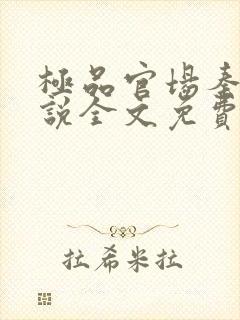 極品官場秦
說全文免費
拉希米拉